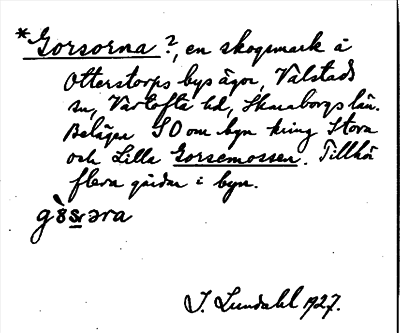 *Gorsorna?, en skogsmark å
Otterstorps bys ägor, Valstads
sn, Vartofta hd, Skaraborgs län.
Belägen SO om byn kring Stora
och Lilla Gorsemossen. Tillhör
flera gårdar i byn.
I. Lundahl 1927.